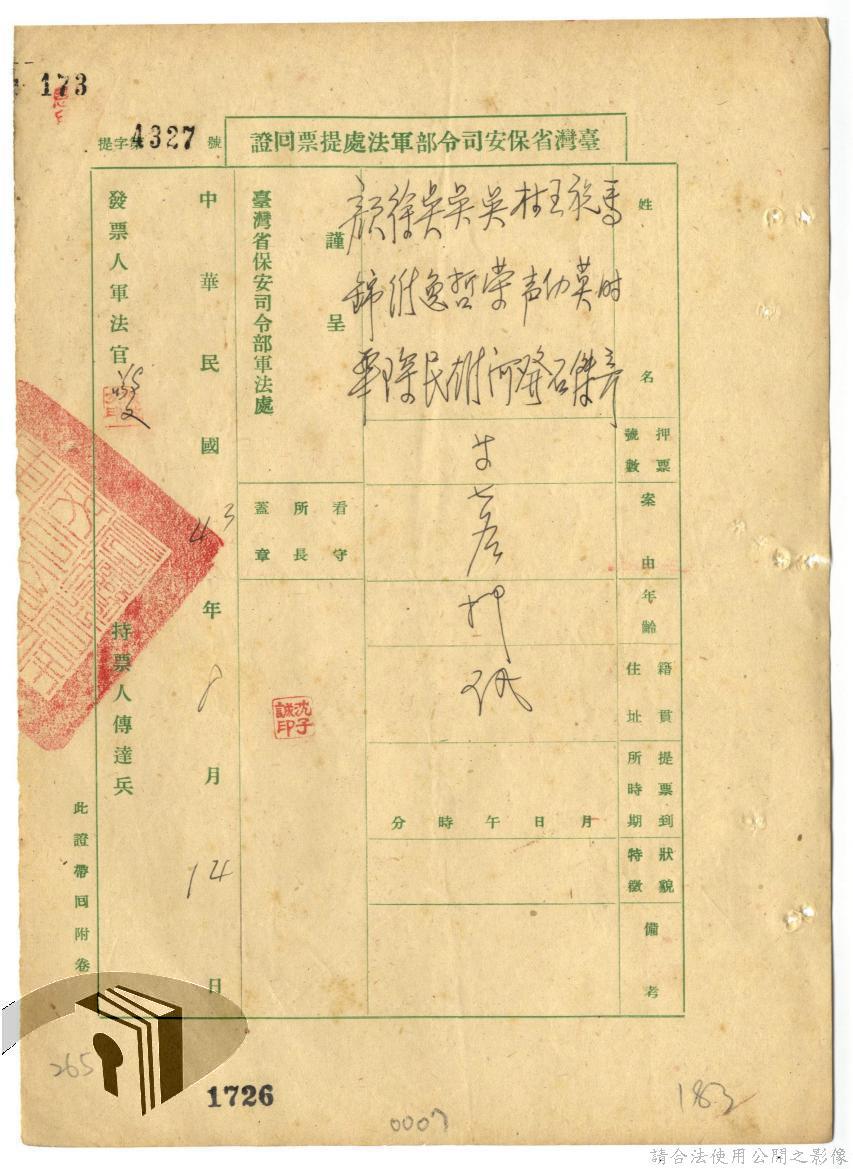 173
提字第4327號
臺灣省保安司令部軍法處提票回證
姓名
馬时彥
施英傑
王幼石
林声發
吳荣河
吳哲雄
吳逸民
徐
顏錦華
押票號數
案由
年齡
籍貫住址
提票到所時期
月日午時分
狀貌特徵
備考
押
謹呈
臺灣省保安司令部軍法處
看守所長蓋章
沈子誠印
中華民國43年8月14日
發票人軍法官
持票人傳達兵
此證帶回附卷
265
1726
0007
183
請合法使用公開之影像